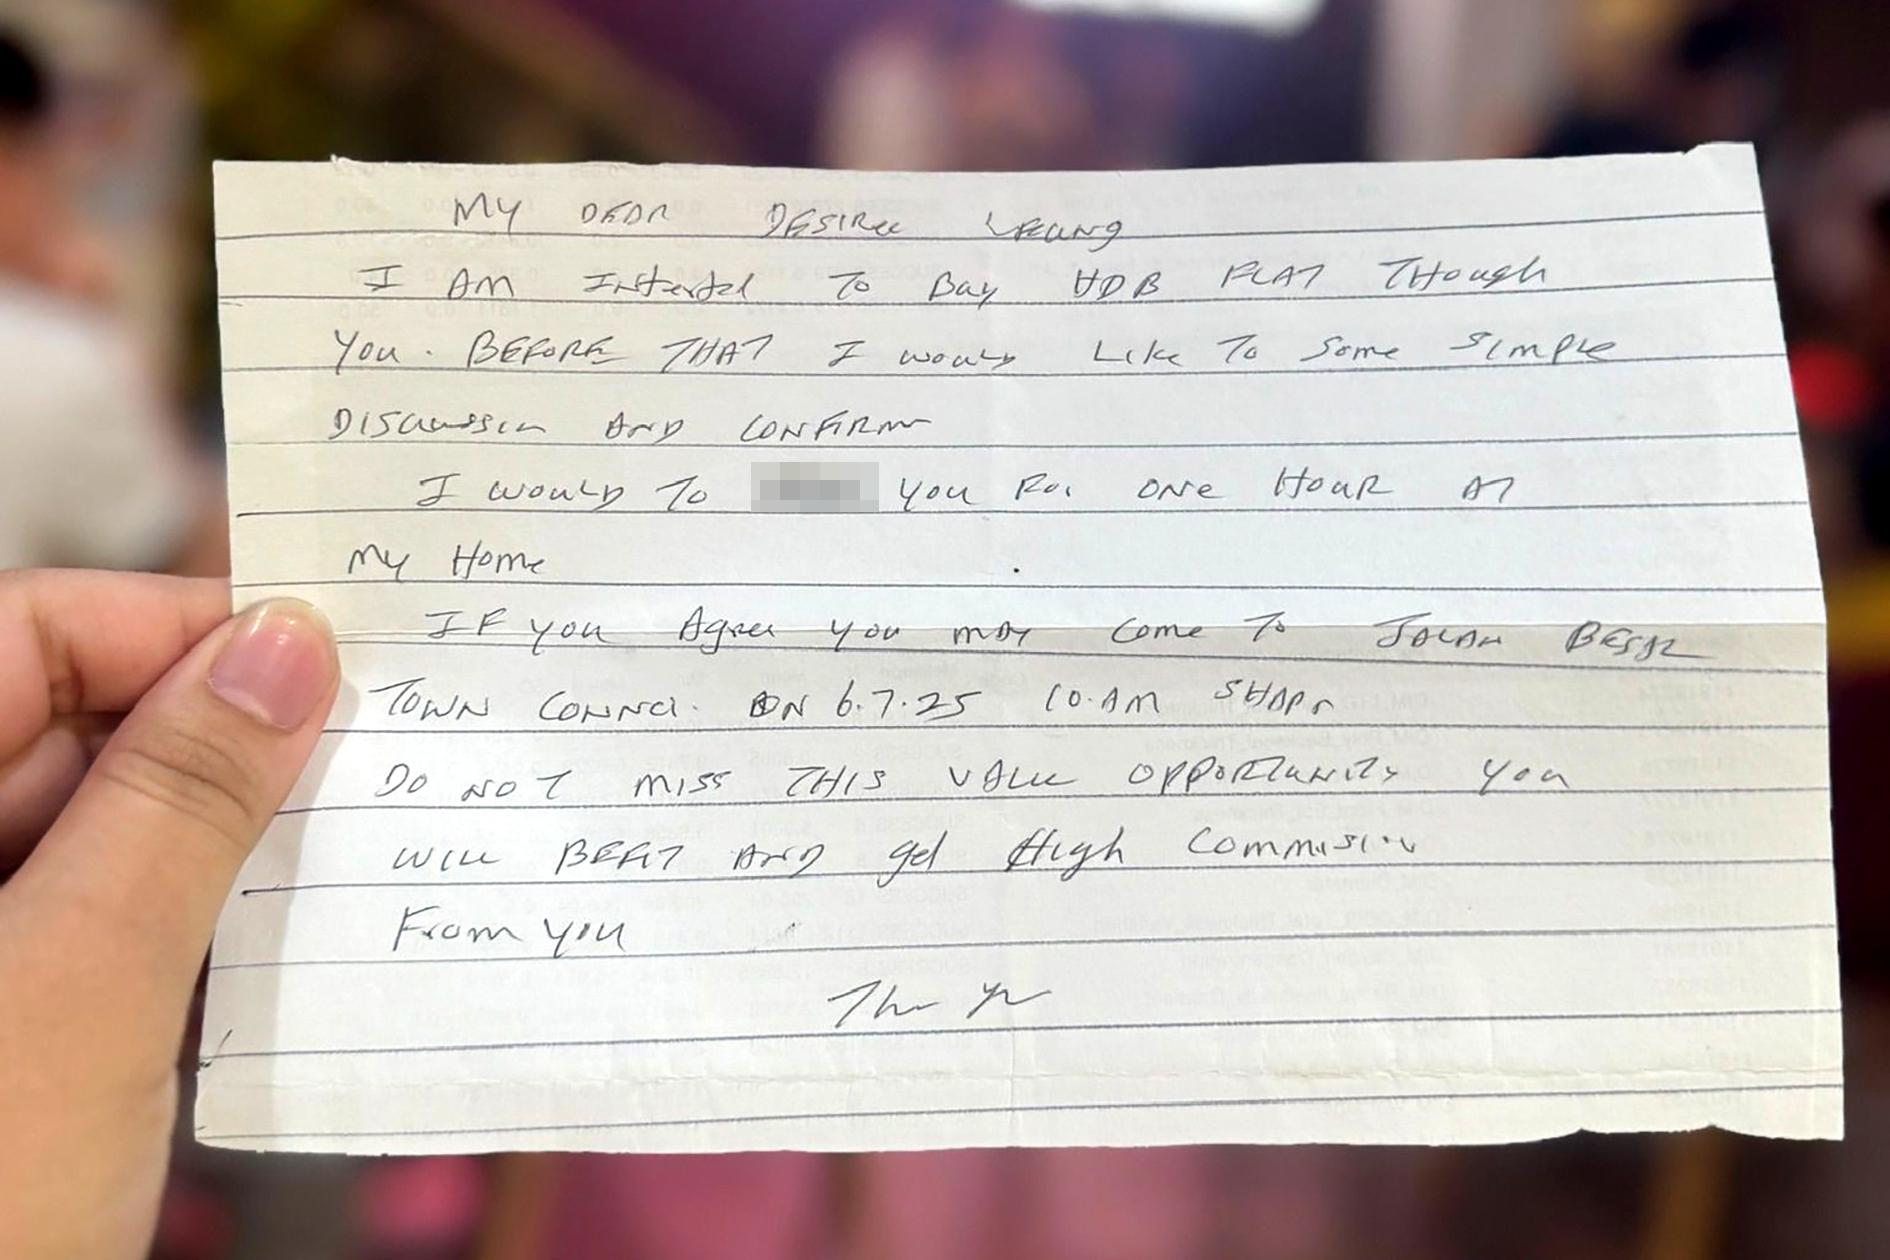 MY DEAR DESIREE LEUNG
I AM Intersted To Bay HDB FLAT THough
You. BEFORE THAT I would Like To Some SIMPLE
DISCUSSION AND CONFIRM
I would To you For ONE HOUR AT
My Home
IF you Agree you may Come To JALAN BESAR
TOWN CONNCI. ON 6.7.25 10.AM SHARP
DO NOT MISS THIS VALUE OPPORTUNITY YOU
WILL BEFIT AND gel High Commision
From you